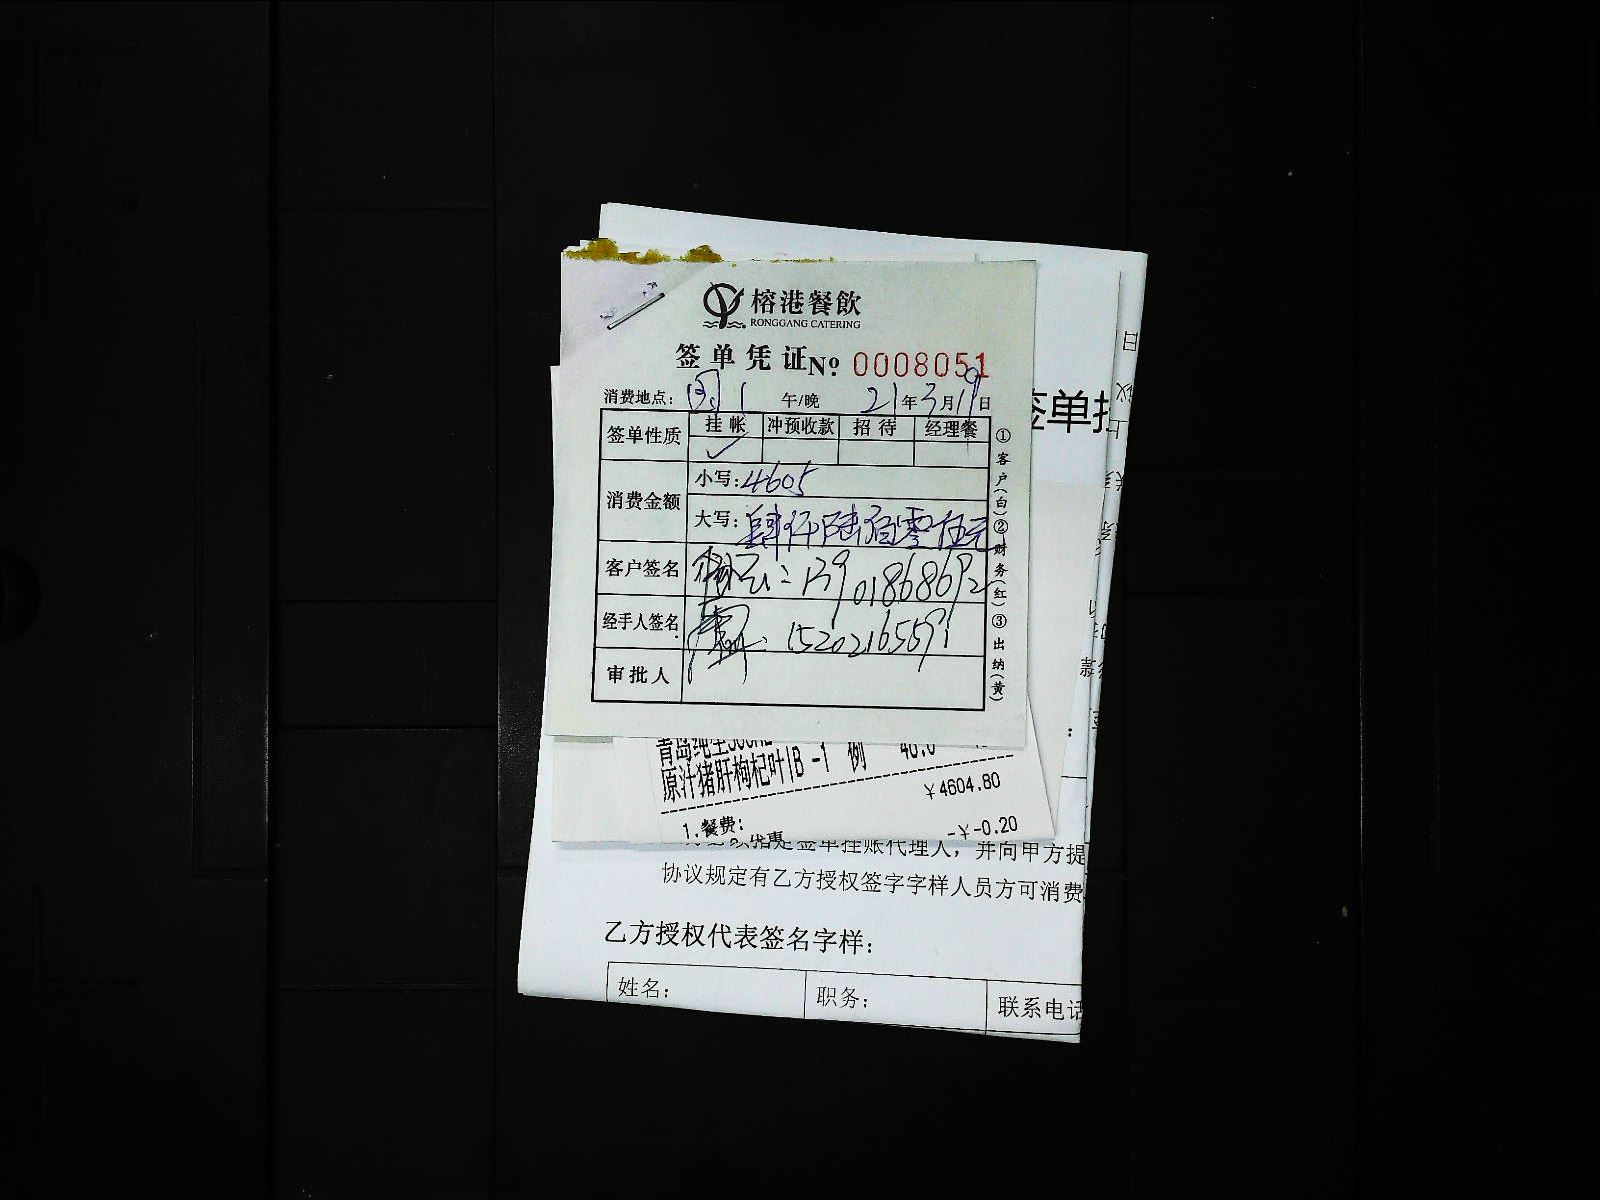 榕港餐飲
RONGGANG CATERING
签单凭证 Nº 0008051
消费地点: 1 午/晚 21年3月19日
签单性质 挂帐 冲预收款 招待 经理餐
✓
消费金额 小写:4605
大写:肆仟陆佰零伍元
客户签名 13901868692
经手人签名 15202165591
审批人
①客户(白)②财务(红)③出纳(黄)
签单挂
青岛纯生500ML
原汁猪肝枸杞叶IB -1 例 40.0
￥4604.80
1.餐费:
优惠 -￥-0.20
指定签单挂账代理人，并向甲方提
协议规定有乙方授权签字字样人员方可消费
乙方授权代表签名字样:
姓名: 职务: 联系电话